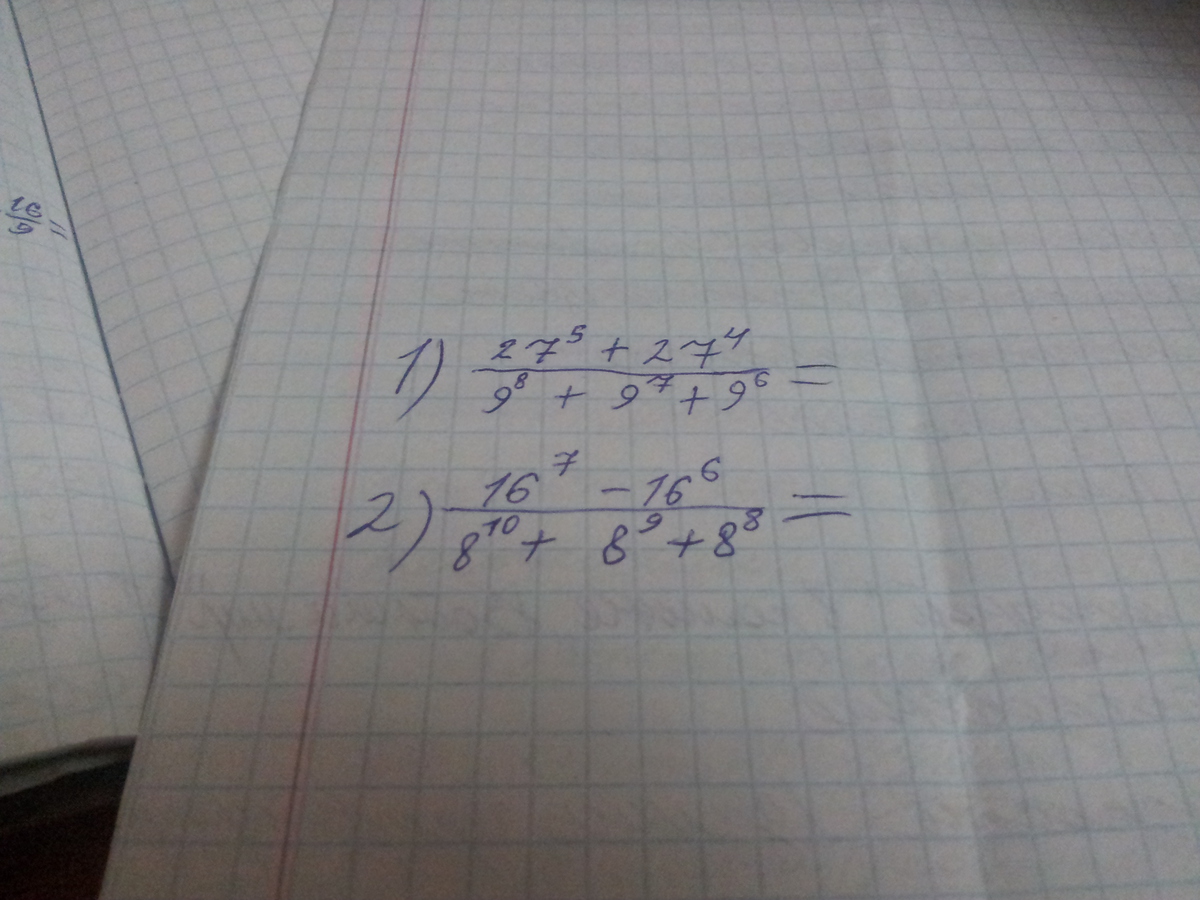 1) (27⁵ + 27⁴)/(9⁸ + 9⁷ + 9⁶) =
2) (16⁷ - 16⁶)/(8¹⁰ + 8⁹ + 8⁸) =